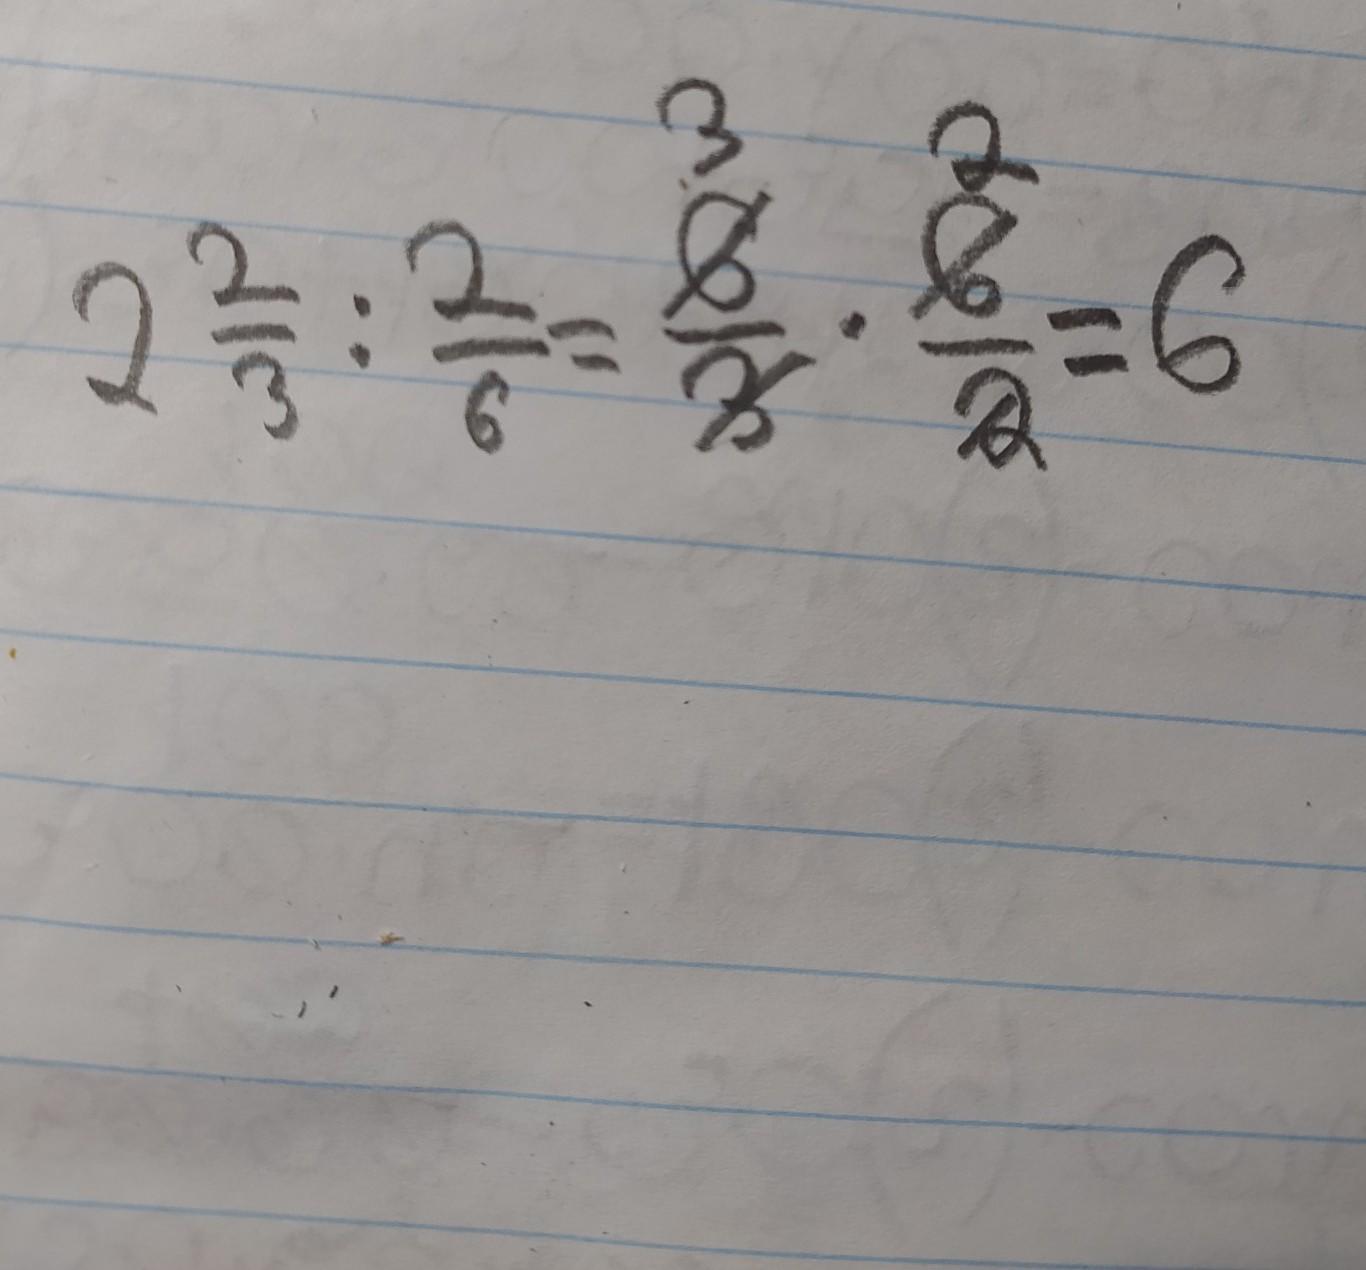 2 2/3 : 2/6 = 3 6/3 · 2 6/2 = 6